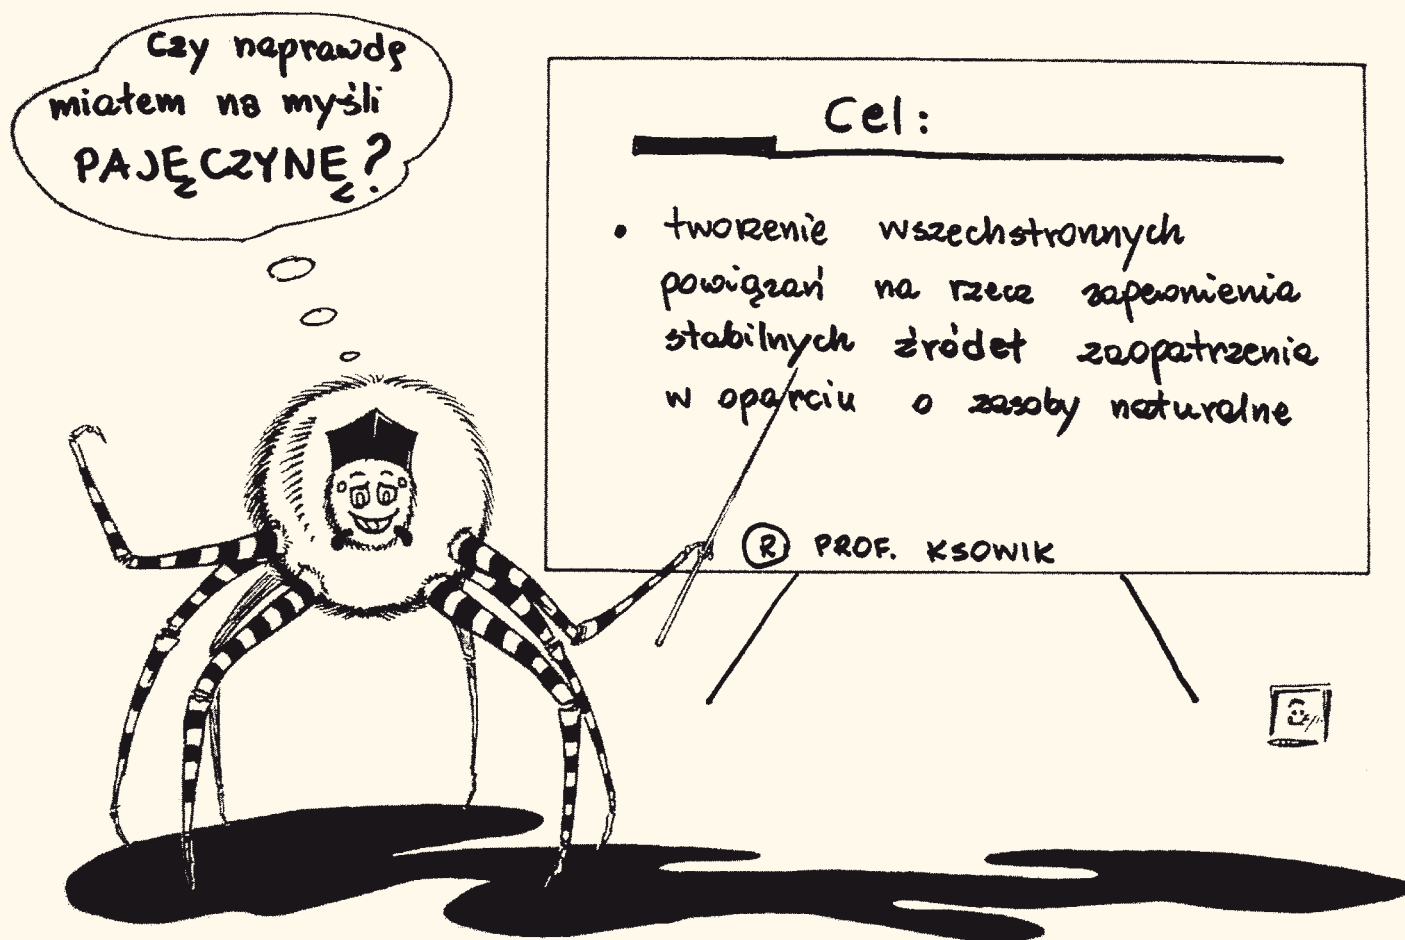 Czy naprawdę
miałem na myśli
PAJĘCZYNĘ?
Cel:
• tworzenie wszechstronnych
powiązań na rzecz zapewnienia
stabilnych źródeł zaopatrzenia
w oparciu o zasoby naturalne
® PROF. KSOWIK